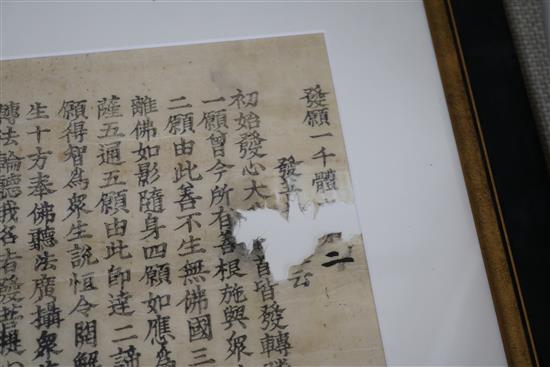 發願一千體
二
云
初始發心大
皆發轉
一願曾今所有善根施與眾
二願由此善不生無佛國三
離佛如影隨身四願如應為
薩五通五願由此即達二諦
願得智為眾生說恒令開解
生十方奉佛聽法廣攝眾
轉法輪聽我名者發菩提